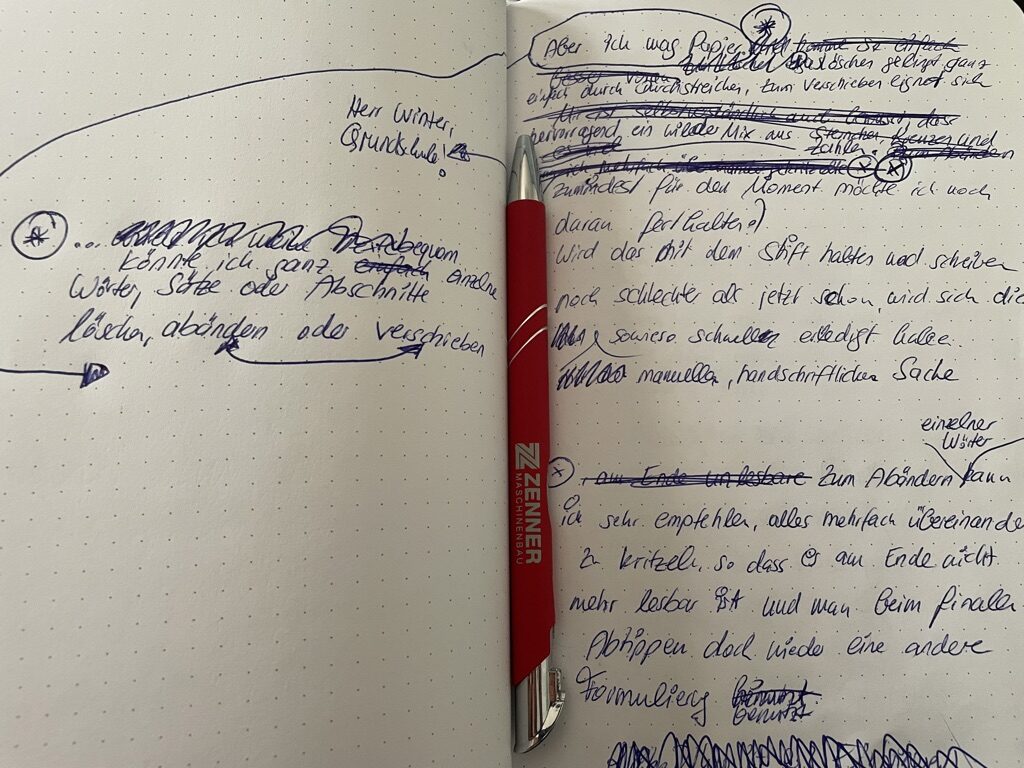 Herr Winter,
Grundschule!
... bequem
könnte ich ganz einfach einzelne
Wörter, Sätze oder Abschnitte
löschen, abändern oder verschieben
ZENNER
MASCHINENBAU
Aber ich mag Papier,
löschen gelingt ganz
einfach durch Durchstreichen, zum Verschieben eignet sich
Mir ist selbstverständlich auch bewusst, dass
hervorragend ein wilder Mix aus Sternchen, Kreuzen und
Zahlen.
zumindest für den Moment möchte ich noch
daran festhalten.)
Wird das mit dem Stift halten und schreiben
noch schlechter als jetzt schon, wird sich die
sowieso schnell erledigt haben.
manuellen, handschriftlichen Sache
einzelner
Wörter
am Ende unlesbare Zum Abändern kann
ich sehr empfehlen, alles mehrfach übereinander
zu kritzeln, so dass es am Ende nicht
mehr lesbar ist und man beim finalen
Abtippen doch wieder eine andere
Formulierung benutzt
benutzt